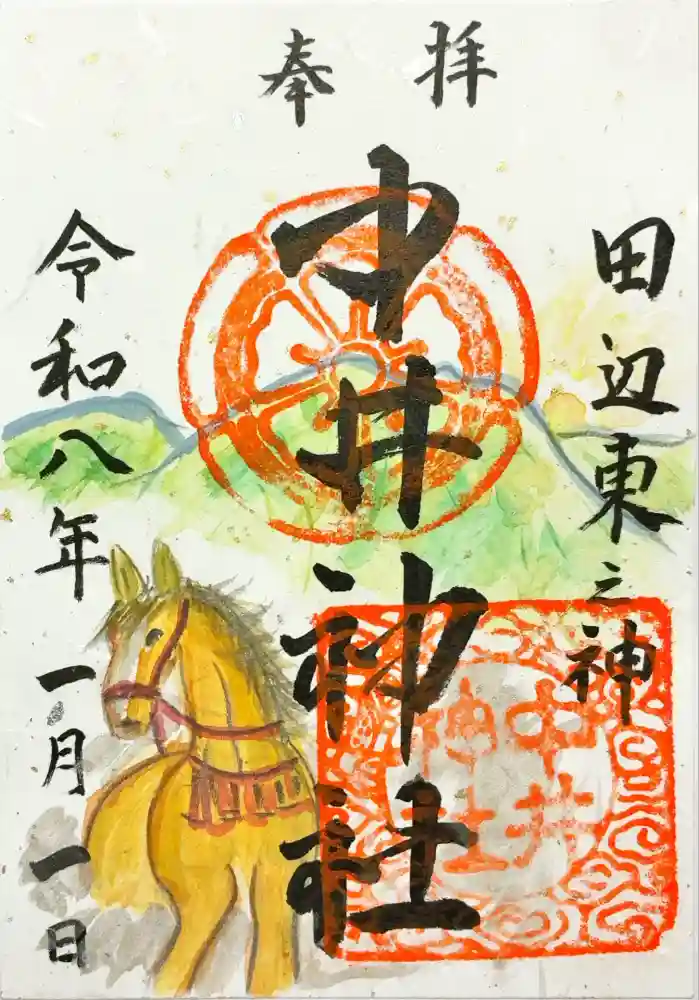 奉拝
田辺東之神
中井神社
令和八年一月一日
中井
神社